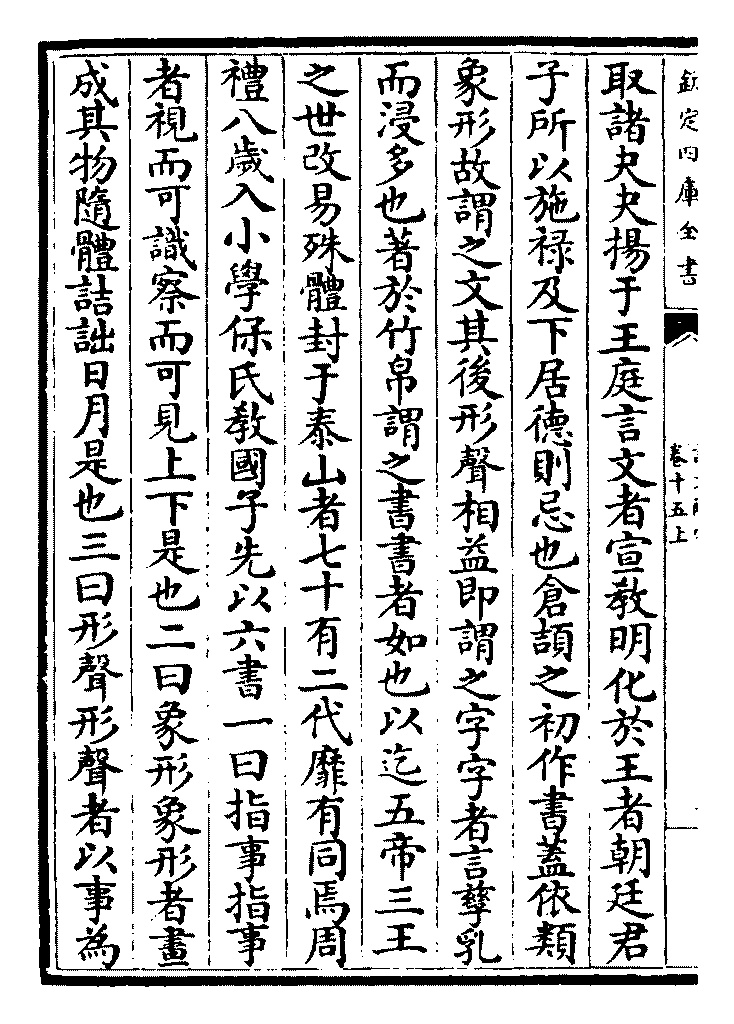 欽定四庫全書
卷十五上
取諸夬夬揚于王庭言文者宣教明化於王者朝廷君
子所以施禄及下居德則忌也倉頡之初作書蓋依類
象形故謂之文其後形聲相益即謂之字字者言孳乳
而浸多也著於竹帛謂之書書者如也以迄五帝三王
之世改易殊體封于泰山者七十有二代靡有同焉周
禮八歲入小學保氏教國子先以六書一曰指事指事
者視而可識察而可見上下是也二曰象形象形者畫
成其物隨體詰詘日月是也三曰形聲形聲者以事為